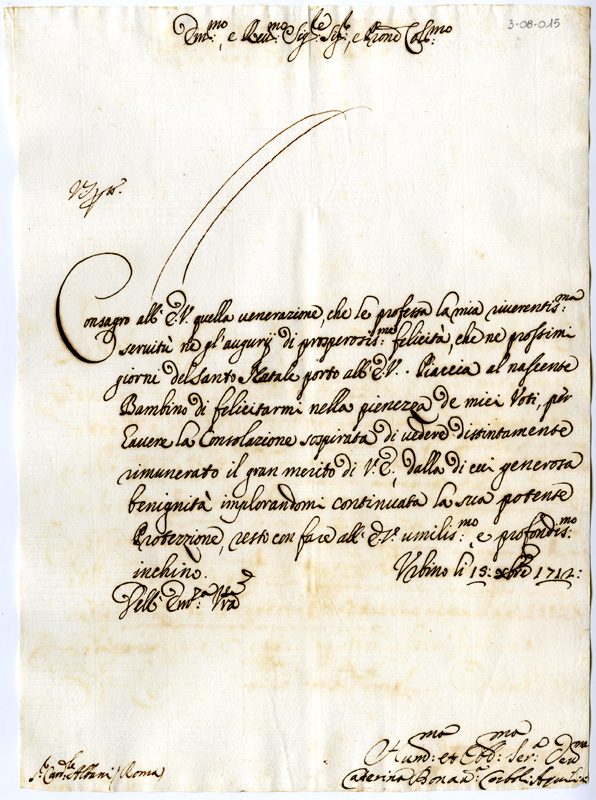 3-08-015
Em:mo, e Reu:mo Sig:re Sig:re, e Prone Col:mo
Consagro all'E.V. quella uenerazione, che le professa la mia riuerentis:ma
seruitù ne gl'augurij di prosperosis:me felicità, che ne prossimi
giorni del Santo Natale porto all'E.V. Piaccia al nascente
Bambino di felicitarmi nella pienezza de miei Voti, per
hauere la Consolazione sospirata di uedere distintamente
rimunerato il gran merito di V.E., dalla di cui generosa
benignità implorandomi continuata la sua potente
Protezzione, resto con fare all'E.V. umilis:mo, e profondis:mo
inchino.
Vrbino li 15: xbre 1712:
Dell'Em:za Vra
S.r Card:le Albani Roma
Vma: et Obb:ma Ser:a Deu:ma
Caterina Bonau: Corboli Aquilini